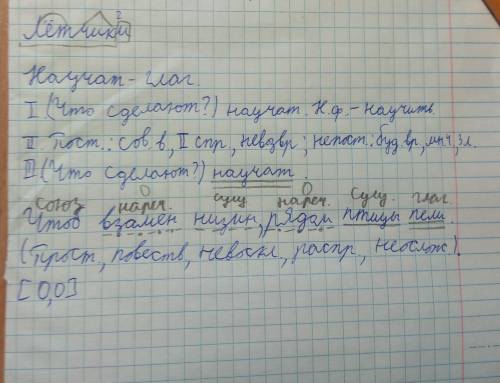 Лётчики²
Научат - глаг.
I (Что сделают?) научат. Н.ф. - научить
II Пост.: сов.в, II спр, невозвр; непост: буд.вр, мн.ч, 3л.
III (Что сделают?) научат.
союз нареч. сущ нареч. сущ. глаг.
Чтоб взамен низин, рядом птицы пели.
(Прост, повеств, невоскл, распр, неослож).
[O,O]